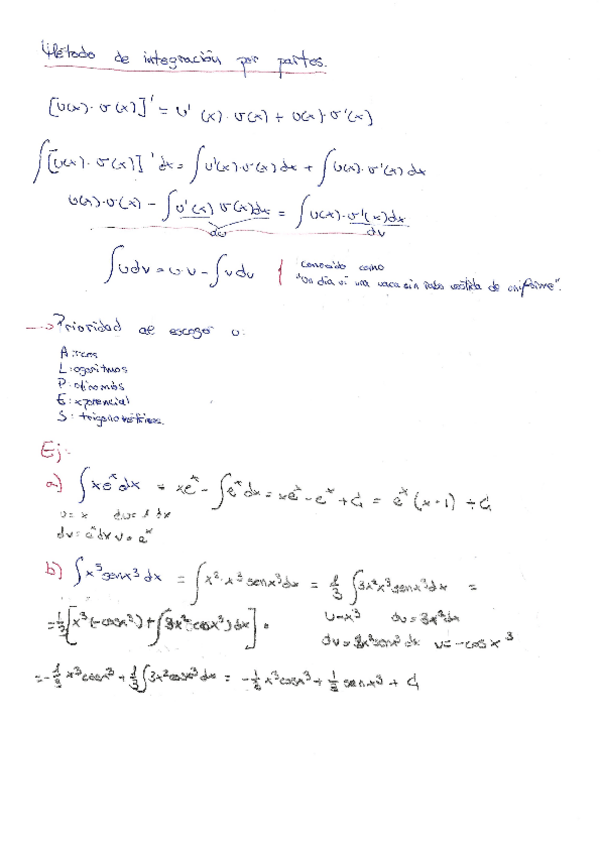 Método de integración por partes.
[u(x)·v(x)]' = u'(x)·v(x) + u(x)·v'(x)
∫[u(x)·v(x)]'dx = ∫u'(x)·v(x)dx + ∫u(x)·v'(x)dx
u(x)·v(x) - ∫u'(x)v(x)dx = ∫u(x)·v'(x)dx
du dv
∫udv = u·v - ∫vdu conocido como
"Un día vi una vaca sin rabo vestida de uniforme".
--> Prioridad de escoger u:
A: rcos
L: ogaritmos
P: olinomios
E: xponencial
S: trigonométricas.
Ej:
a) ∫xe^x dx = xe^x - ∫e^x dx = xe^x - e^x + C = e^x(x-1) + C
u = x du = 1 dx
dv = e^x dx v = e^x
b) ∫x^5 senx^3 dx = ∫x^2·x^3 senx^3 dx = 1/3 ∫3x^2x^3 senx^3 dx =
= 1/3[x^3(-cosx^3) + ∫3x^2 cosx^3)dx] = u = x^3 du = 3x^2dx
dv = 3x^2senx^3 dx v = -cos x^3
= -1/3 x^3cosx^3 + 1/3 ∫3x^2cosx^3 dx = -1/3 x^3cosx^3 + 1/3 senx^3 + C